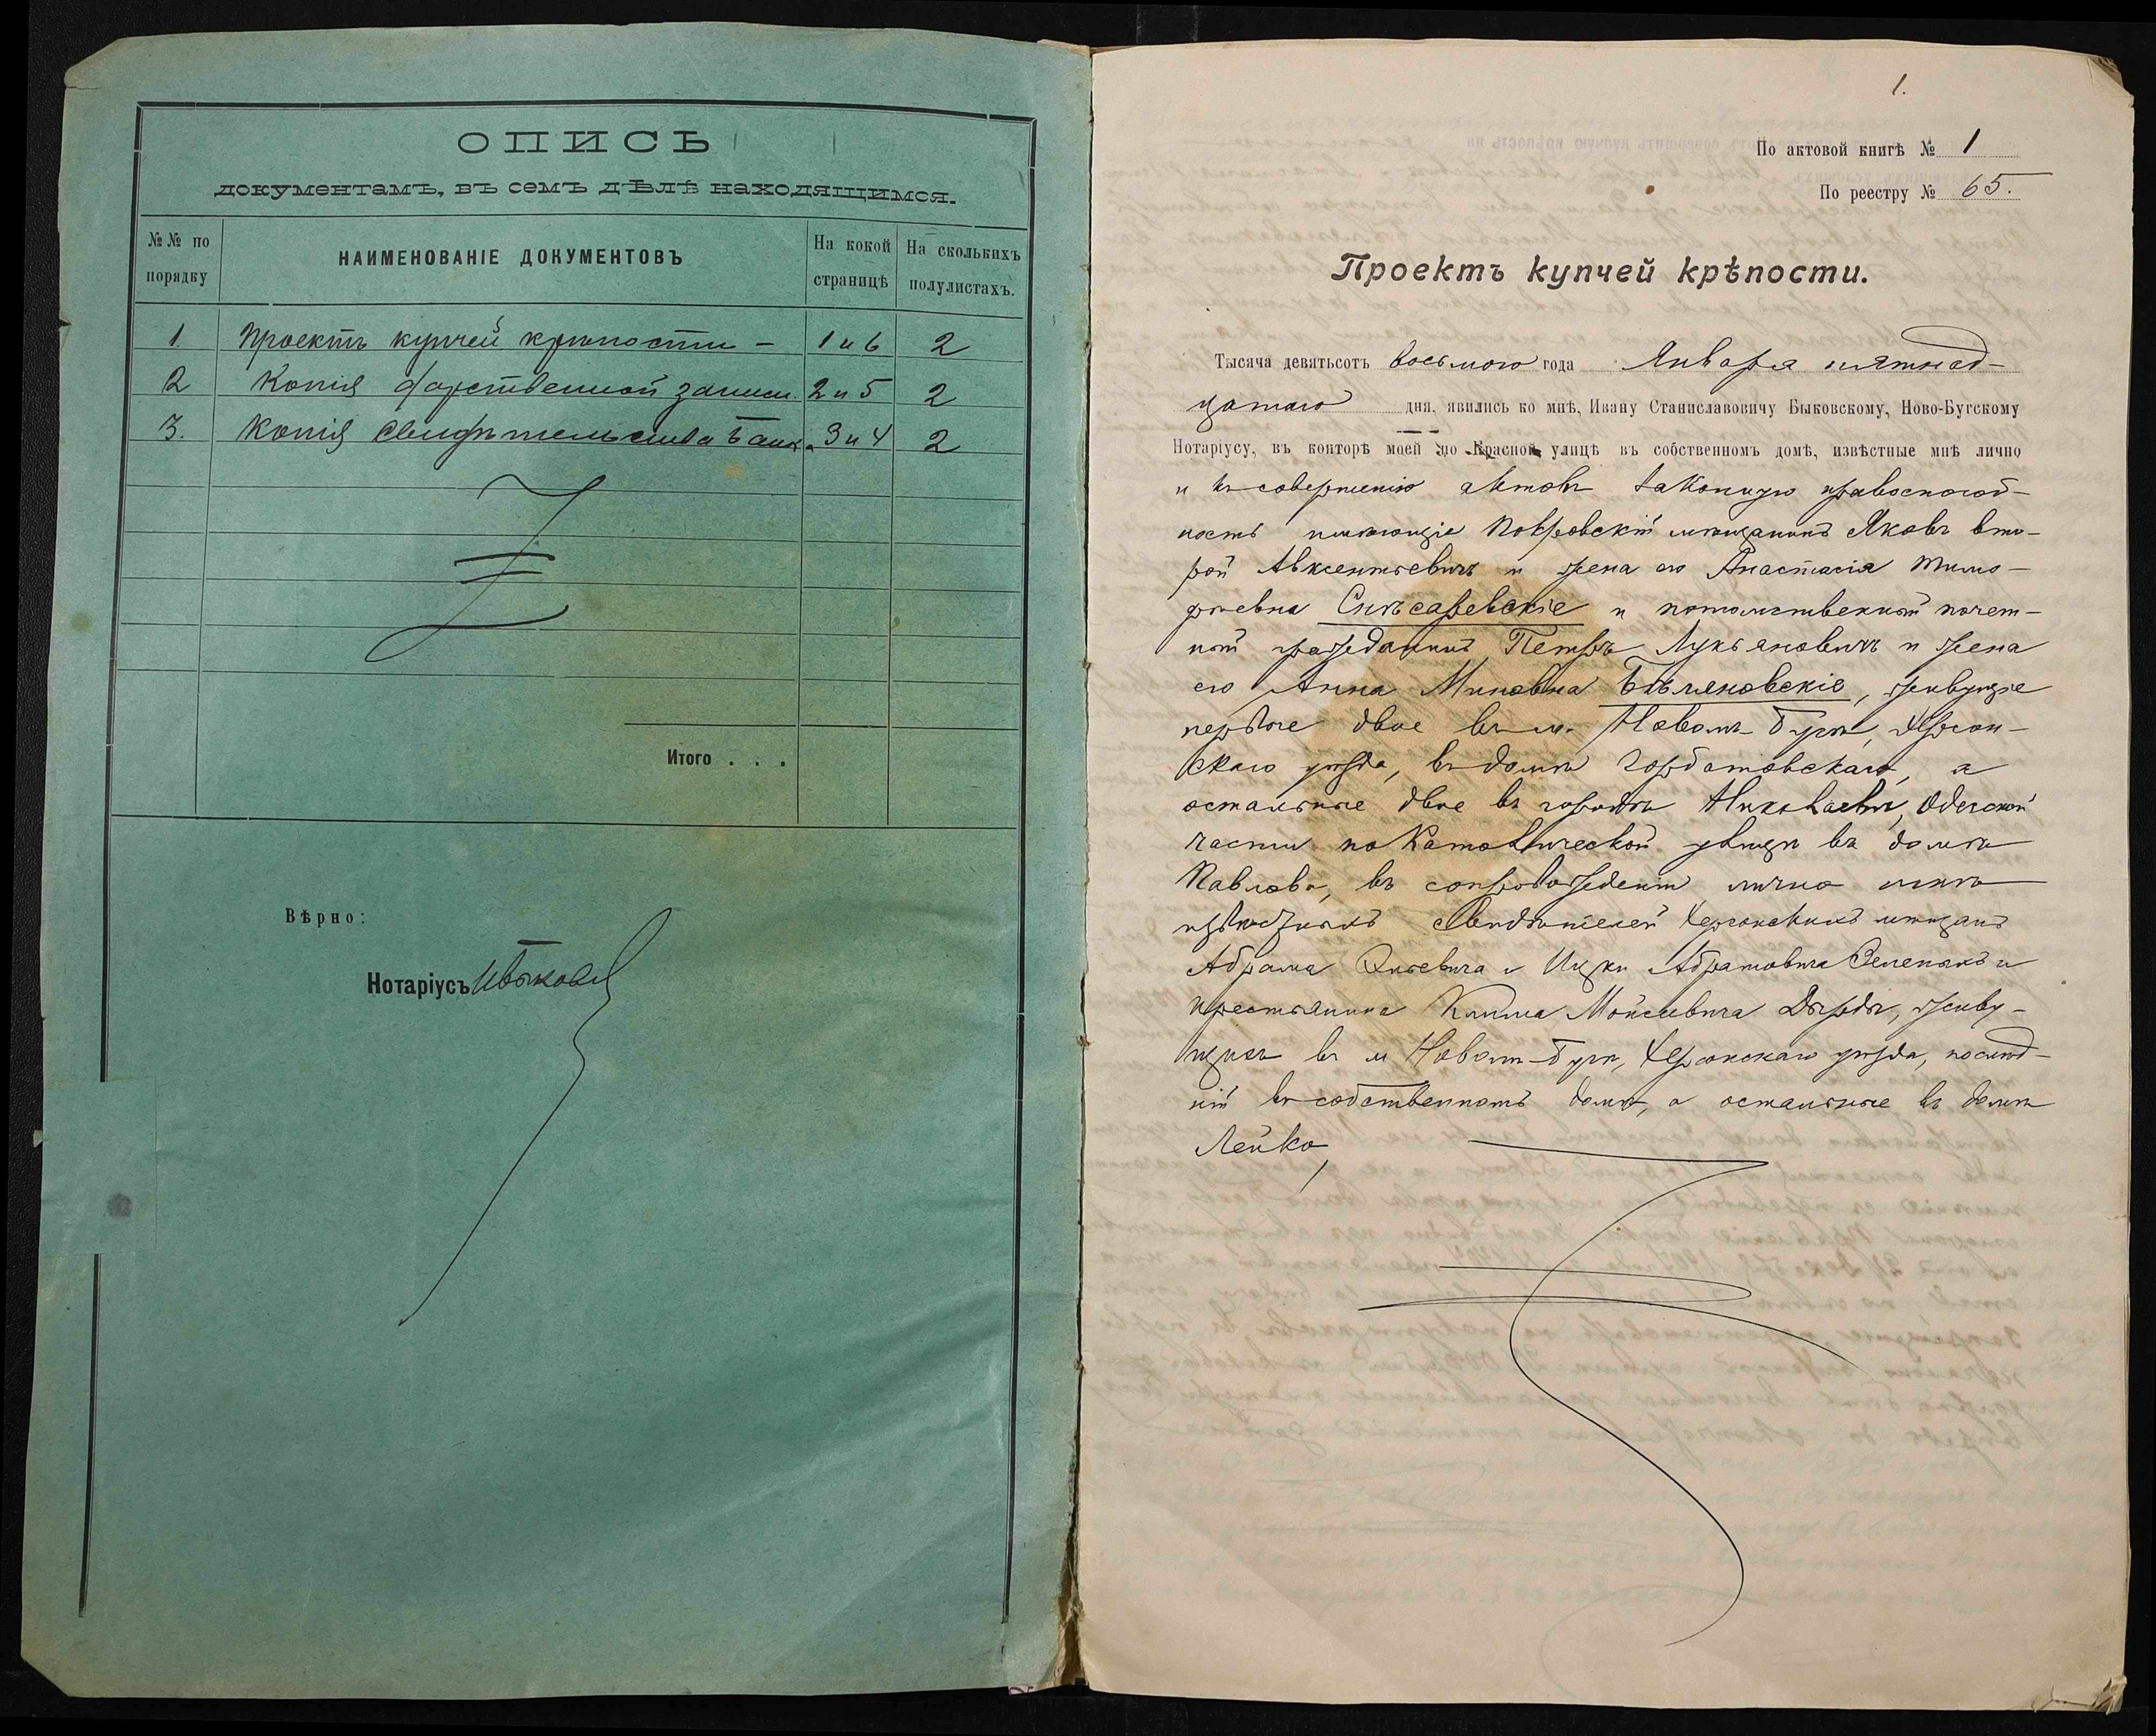 ОПИСЬ
документамъ, въ семъ дѣлѣ находящимся.
№№ по порядку
НАИМЕНОВАНІЕ ДОКУМЕНТОВЪ
На кокой страницѣ
На сколькихъ полулистахъ.
1. Проектъ купчей крѣпости – 1 и 6 2
2 Копія дарственной записи. 2 и 5 2
3. Копія свидѣтельства Банка 3 и 4 2
Итого . . .
Вѣрно:
Нотаріусъ ИБыковск
1.
По актовой книгѣ № 1
По реестру № 65.
Проектъ купчей крѣпости.
Тысяча девятьсотъ восьмого года Января пятнад-
цатаго дня, явились ко мнѣ, Ивану Станиславовичу Быковскому, Ново-Бугскому
Нотаріусу, въ конторѣ моей по Красной улицѣ въ собственномъ домѣ, извѣстные мнѣ лично
и къ совершенію актовъ законную правоспособ-
ность имѣющіе Покровскій мѣщанинъ Яковъ вто-
рой Авксентьевичъ и жена его Анастасія Тимо-
фѣевна Снѣсаревскіе и потомственный почет-
ный гражданинъ Петръ Лукьяновичъ и жена
его Анна Миновна Бѣляновскіе, живущіе
первые двое въ м. Новомъ-Бугѣ, Херсон-
скаго уѣзда, въ домѣ Горбатовскаго, а
остальные двое въ городѣ Николаевѣ, Одесской
части по Католической улицѣ въ домѣ
Павлова, въ сопровожденіи лично мнѣ
извѣстныхъ свидѣтелей Херсонскихъ мѣщанъ
Абрама и Ицки Абрамовича и
крестьянина Клима Моисеевича живу-
щихъ въ м Новомъ-Бугѣ, Херсонскаго уѣзда, послѣд-
ній въ собственномъ домѣ, а остальные въ домѣ
Лейко,